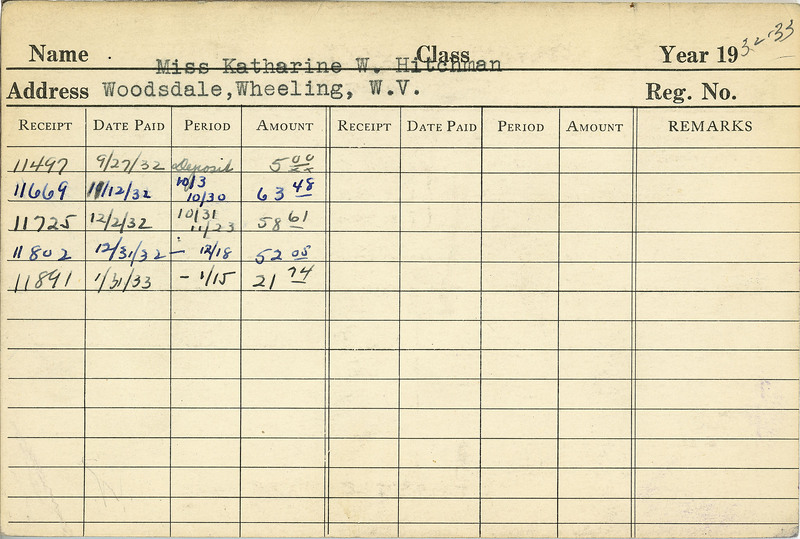 Name Miss Katharine W. Hitchman Class Year 1932-33
Address Woodsdale, Wheeling, W.V. Reg. No.
RECEIPT DATE PAID PERIOD AMOUNT RECEIPT DATE PAID PERIOD AMOUNT REMARKS
11497 9/27/32 Deposit 5 00
11669 11/12/32 10/3 10/30 63 48
11725 12/2/32 10/31 11/23 58 61
11802 12/31/32 — 12/18 52 05
11891 1/31/33 - 1/15 21 74